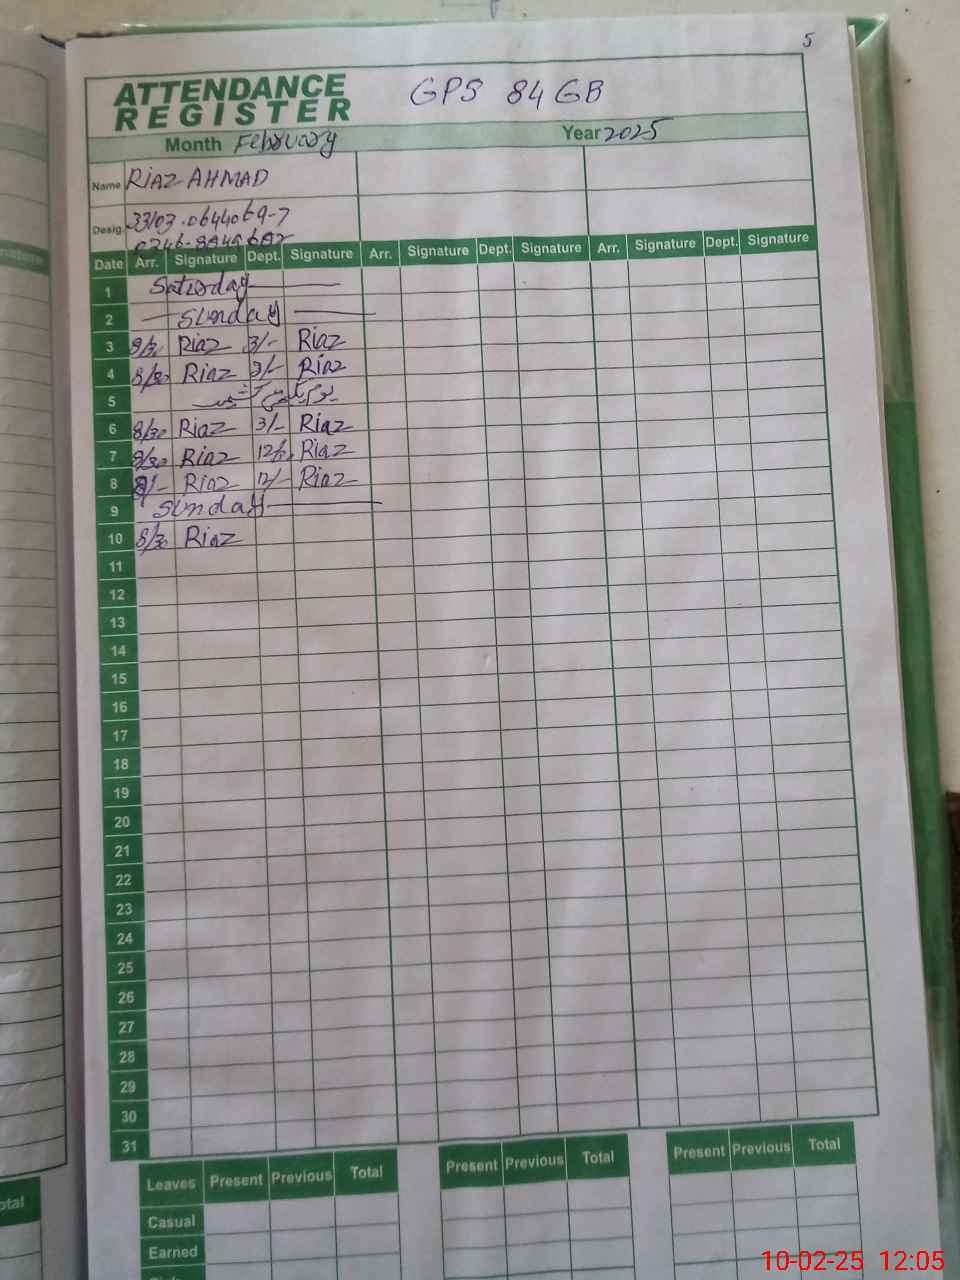 5
ATTENDANCE REGISTER GPS 84 GB
Month February Year 2025
Name RIAZ AHMAD
Desig. 33103.0644069-7
Date Arr. Signature Dept. Signature Arr. Signature Dept. Signature Arr. Signature Dept. Signature
1 Saturday
2 Sunday
3 8/30 Riaz 3/- Riaz
4 8/30 Riaz 3/- Riaz
5 یوم یکجہتی کشمیر
6 8/30 Riaz 3/- Riaz
7 8/30 Riaz Riaz
8 8/- Riaz 12/- Riaz
9 Sunday
10 8/30 Riaz
11
12
13
14
15
16
17
18
19
20
21
22
23
24
25
26
27
28
29
30
31
Leaves Present Previous Total Present Previous Total Present Previous Total
Casual
Earned
10-02-25 12:05